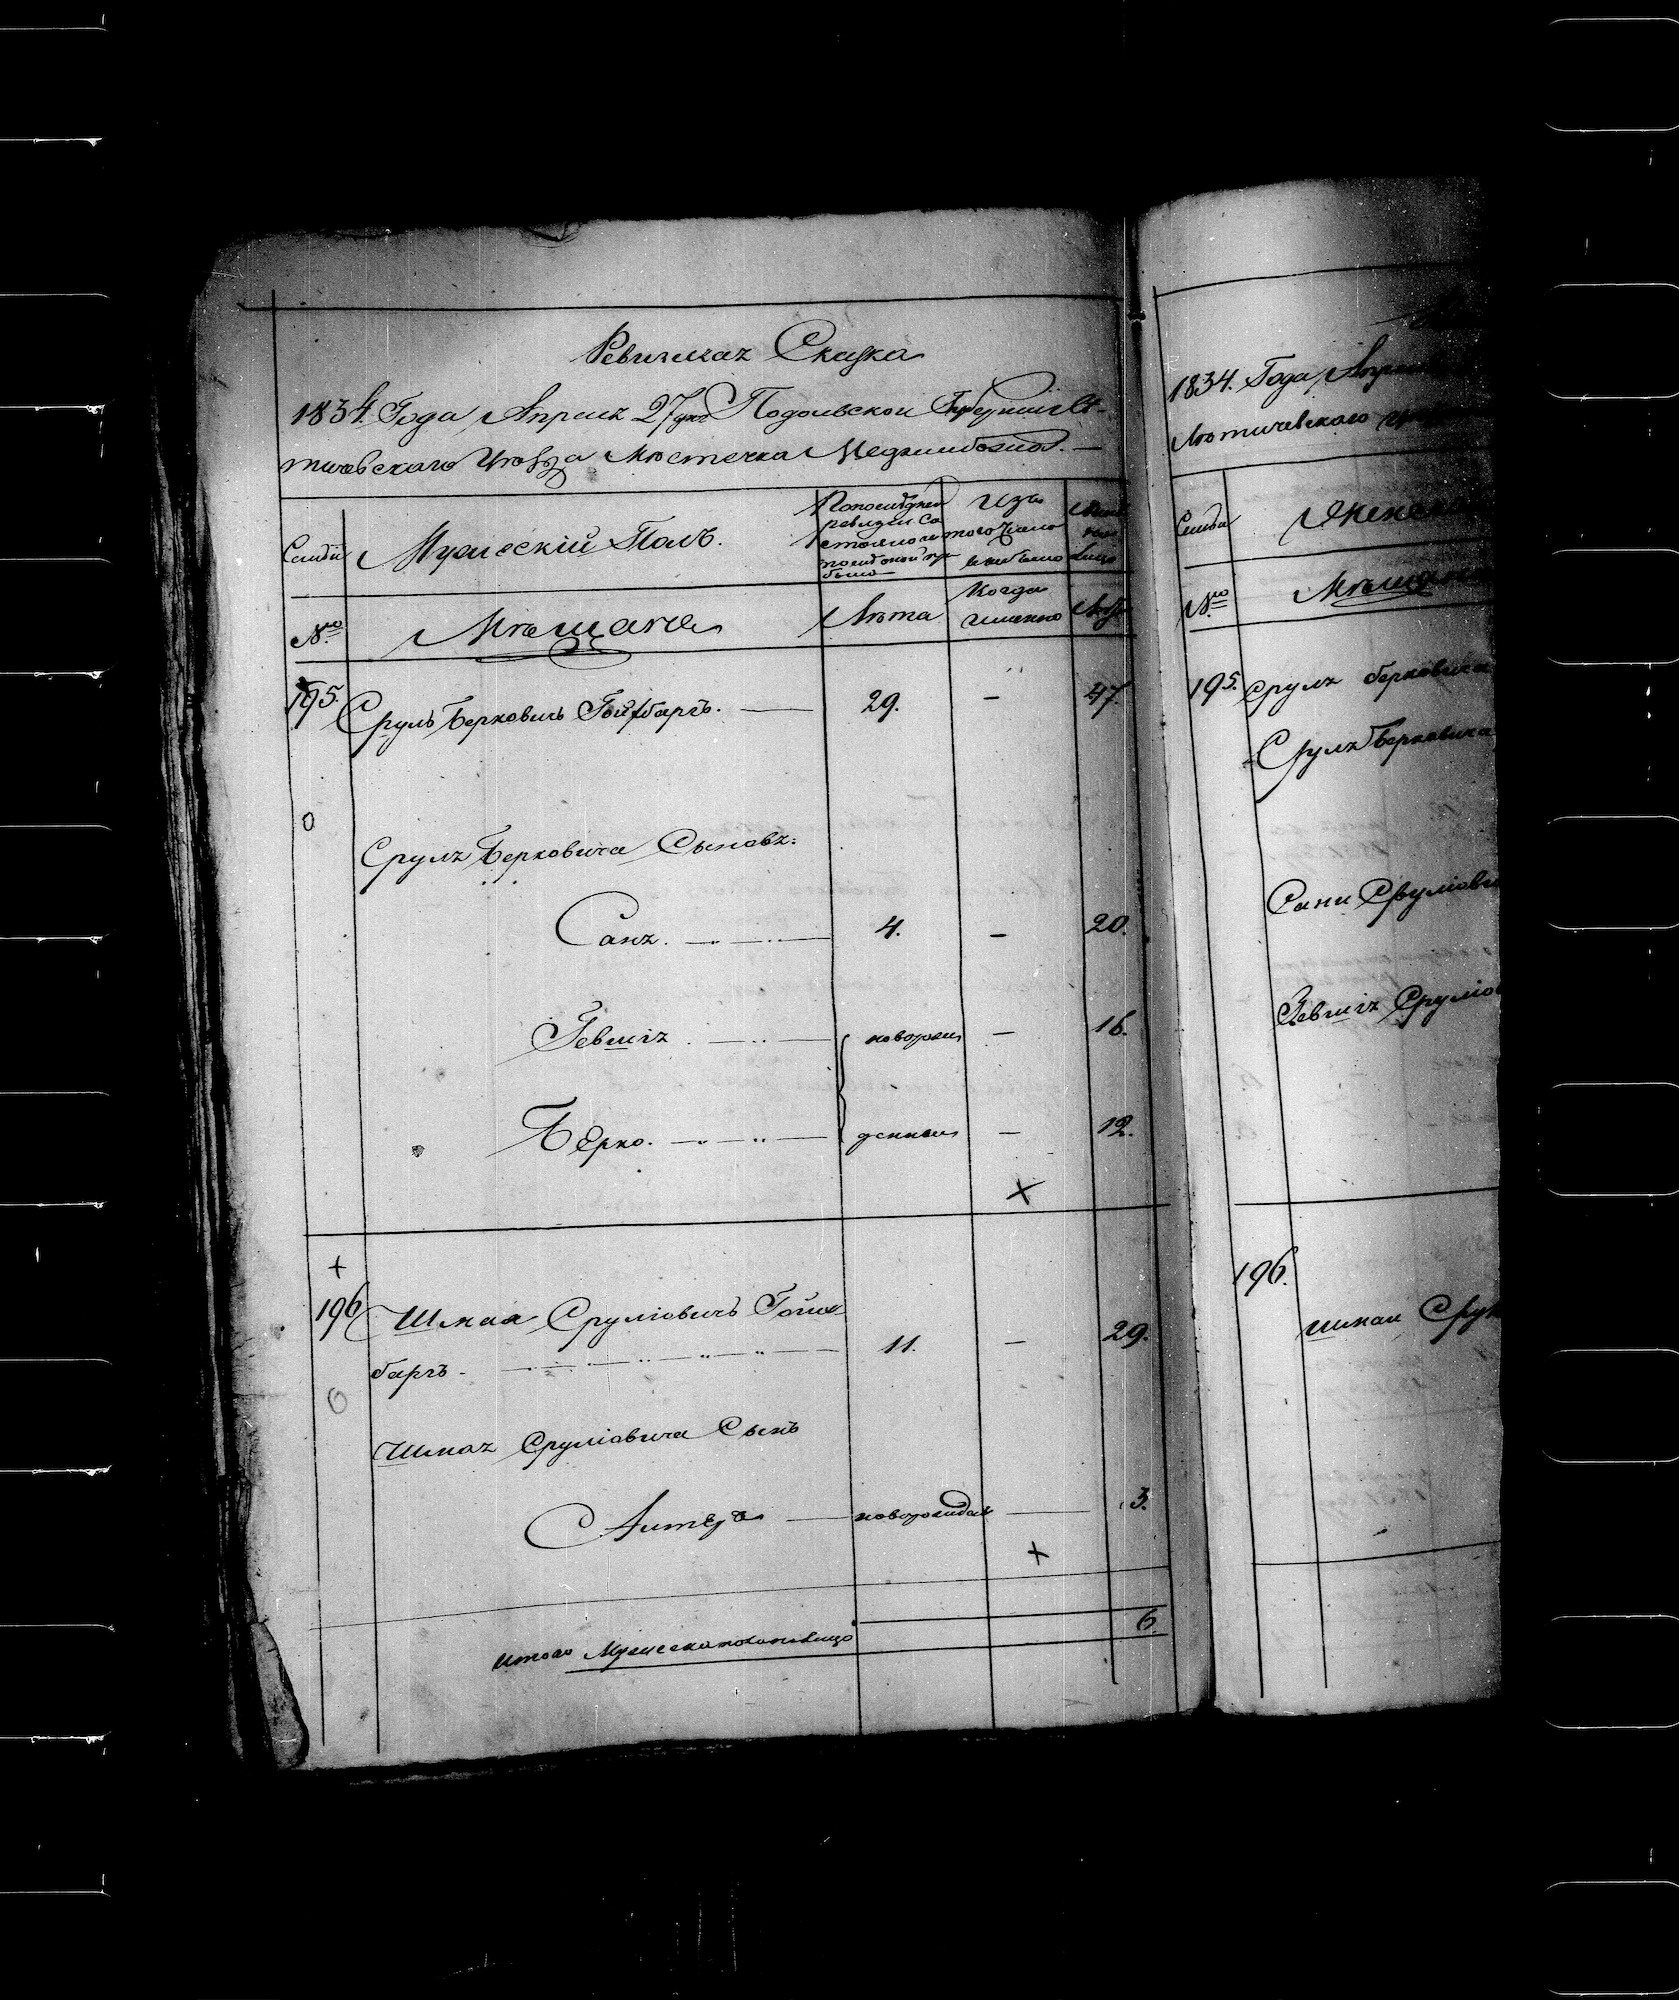 Ревизская Сказка
1834. Года Апреля 27 дня Подольской Губернии Ле-
тичевского Уезда местечка Меджибожа. —
Семьи
Мужескій Полъ.
По последней
ревизіи со
стояло и
после оной при
было
Изъ
того числа
выбыло
Ныне
на
лицо
№
Мещане
Лета
Когда
именно
Лета
195.
Сруль Берковичъ Гойхбаргъ. —
29.
—
47.
0
Сруля Берковича Сыновя:
Саня.
4.
—
20.
Гевшія
новорож
—
16.
Берко.
денныи
—
12.
+
+
196
Шмая Сруліовичъ Гойх-
баргъ -
11.
—
29.
0
Шмая Сруліовича Сынъ
Алтеръ —
новорожден
—
3.
+
Итого Мужеска пола на лицо
6.
1834. Года
Летичевского
Семьи
№
195.
Сруля Берковича
Сруля Берковича
Сани
Гевшія
196.
Шмаи